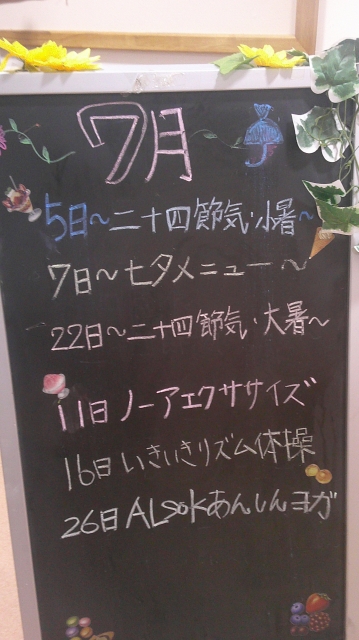 7月
5日～二十四節気・小暑～
7日～七夕メニュー～
22日～二十四節気・大暑～
11日ノーアエクササイズ
16日いきいきリズム体操
26日ALSOKあんしんヨガ